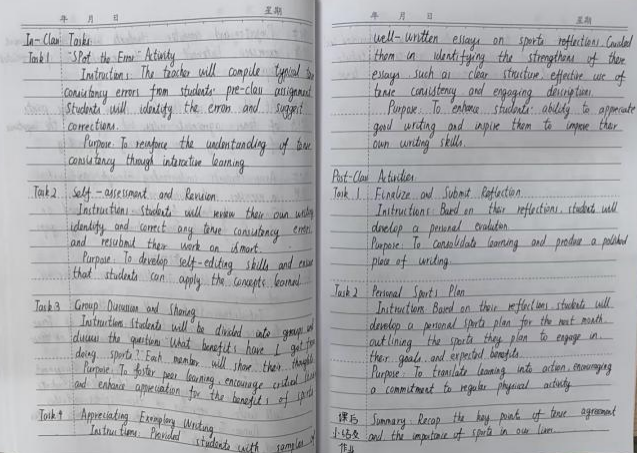 年 月 日 星期
In-Class Tasks
Task 1 "Spot the Error" Activity
Instructions: The teacher will compile typical
consistency errors from students' pre-class assignment
Students will identify the errors and suggest
corrections.
Purpose: To reinforce the understanding of tense
consistency through interactive learning.
Task 2 Self-assessment and Revision
Instructions: Students will review their own writing
identify and correct any tense consistency errors
and resubmit their work on ismart.
Purpose: To develop self-editing skills and ensure
that students can apply the concepts learned.
Task 3 Group Discussion and Sharing
Instructions: Students will be divided into groups and
discuss the questions "What benefits have I got from
doing sports?" Each member will share their thoughts
Purpose: To foster peer learning, encourage critical
and enhance appreciation for the benefits of sports
Task 4 Appreciating Exemplary Writing
Instructions: Provided students with samples of
年 月 日 星期
well-written essays on sports reflections.
them in identifying the strengths of these
essays such as clear structure, effective use of
tense consistency and engaging descriptions.
Purpose: To enhance students' ability to appreciate
good writing and inspire them to improve their
own writing skills.
Post-Class Activities
Task 1 Finalize and Submit Reflection
Instructions: Based on their reflections, students will
develop a personal evaluation
Purpose: To consolidate learning and produce a polished
piece of writing.
Task 2 Personal Sports Plan
Instructions: Based on their reflections students will
develop a personal sports plan for the next month
outlining the sports they plan to engage in,
their goals and expected benefits
Purpose: To translate learning into action, encouraging
a commitment to regular physical activity
课后 Summary: Recap the key point of tense agreement
小结及 and the importance of sports in our lives.
作业